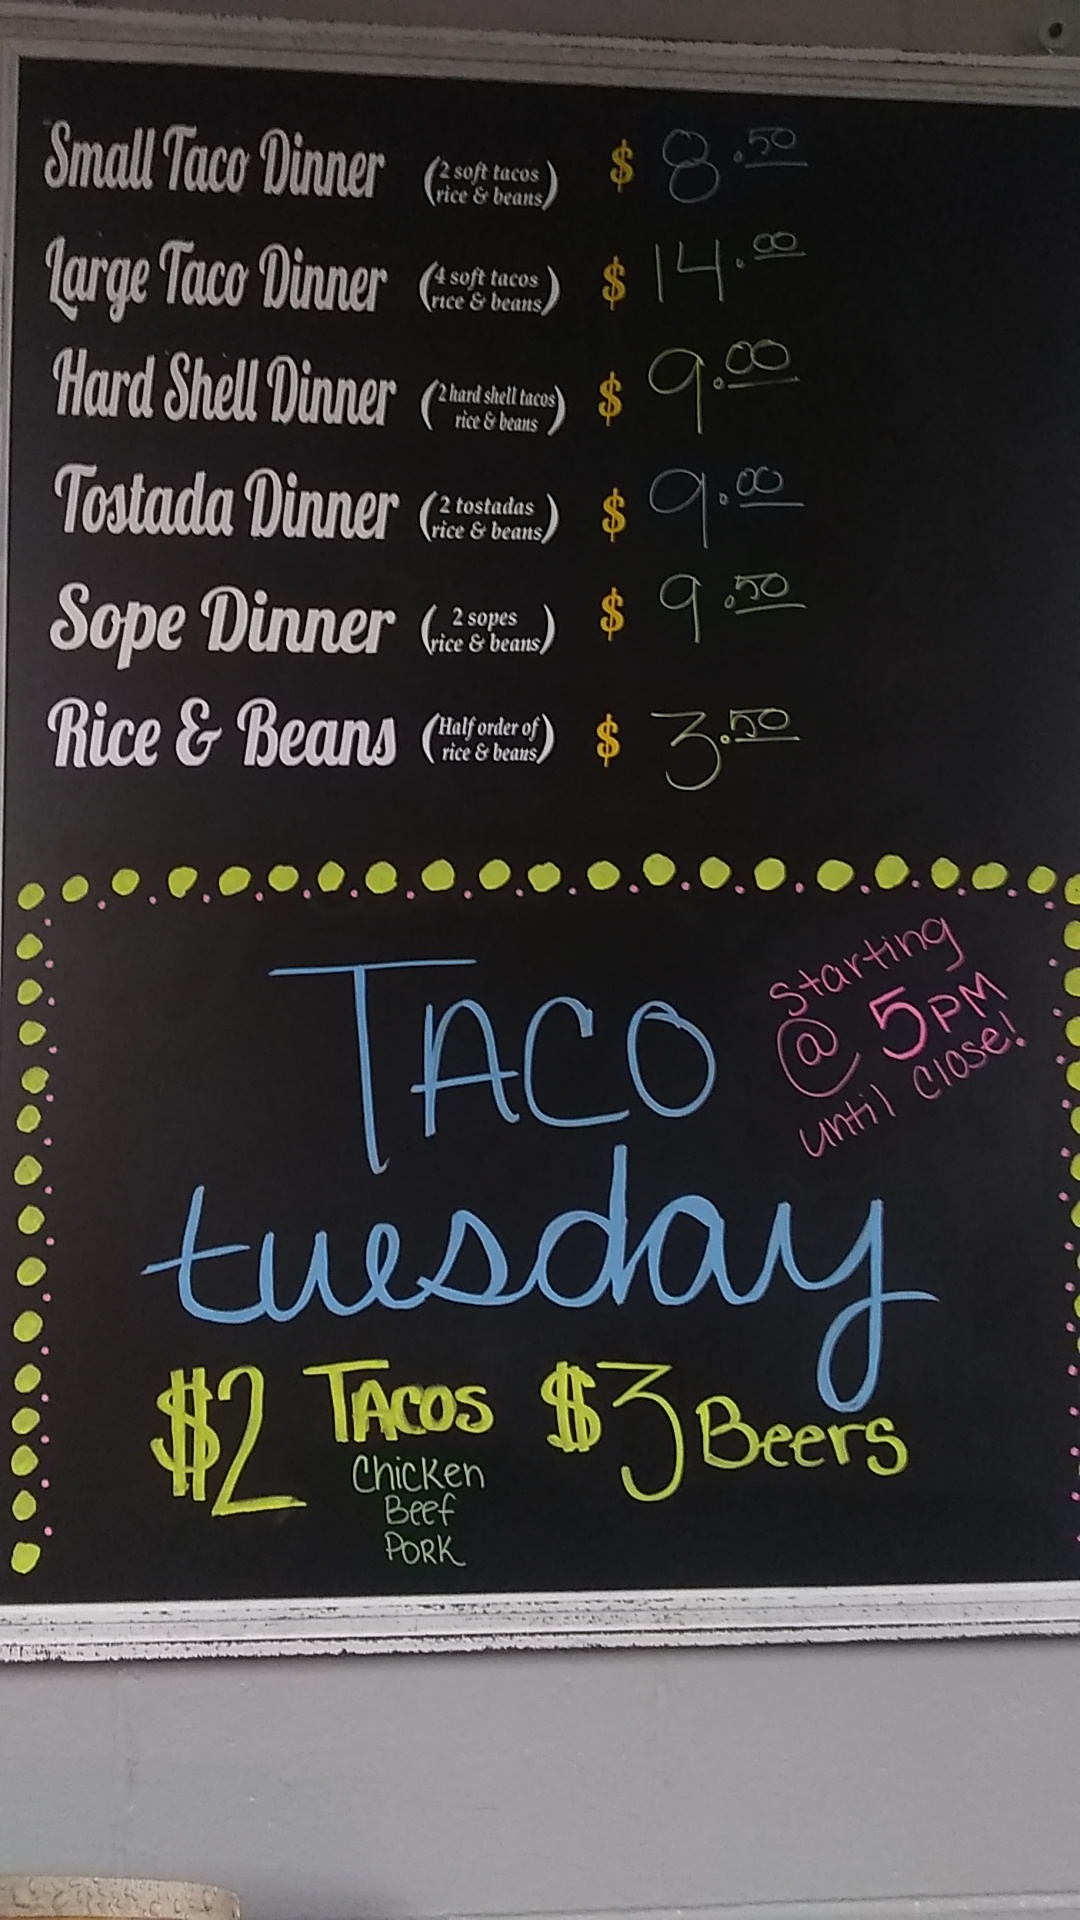 Small Taco Dinner (2 soft tacos rice & beans) $ 8.50
Large Taco Dinner (4 soft tacos rice & beans) $ 14.00
Hard Shell Dinner (2 hard shell tacos rice & beans) $ 9.00
Tostada Dinner (2 tostadas rice & beans) $ 9.00
Sope Dinner (2 sopes rice & beans) $ 9.50
Rice & Beans (Half order of rice & beans) $ 3.50
Starting
@ 5PM
until close!
TACO
tuesday
$2 TACOS $3 Beers
Chicken
Beef
PORK